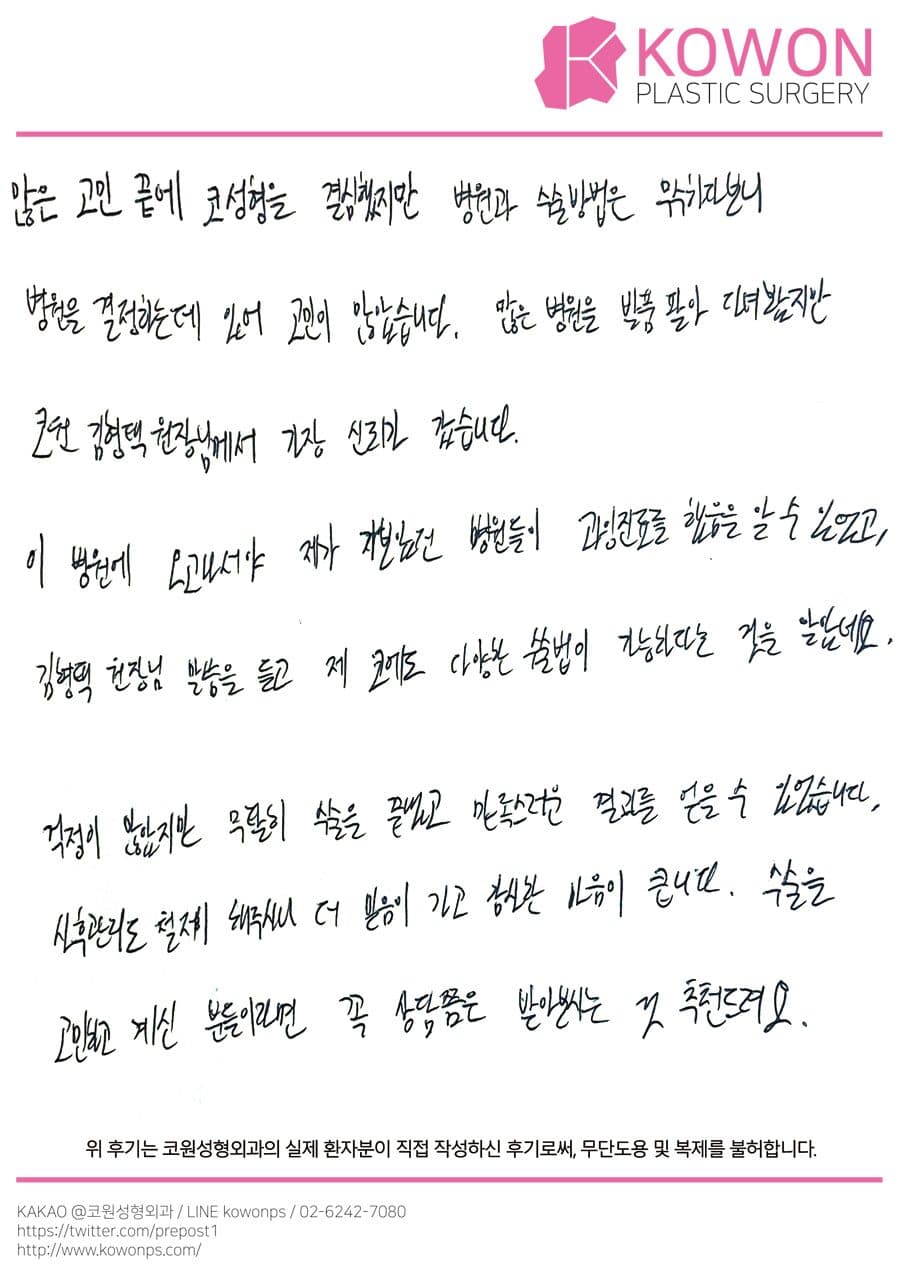 KOWON
PLASTIC SURGERY
많은 고민 끝에 코성형을 결심했지만 병원과 수술방법은 무수하다보니
병원을 결정하는데 있어 고민이 많았습니다. 많은 병원을 발품 팔아 다녀봤지만
코원 김형택 원장님께서 가장 신뢰가 갔습니다.
이 병원에 오고나서야 제가 가보았던 병원들이 과잉진료를 했음을 알 수 있었고,
김형택 원장님 말씀을 듣고 제 코에도 다양한 수술법이 가능하다는 것을 알았네요.
걱정이 많았지만 무탈히 수술을 끝냈고 만족스러운 결과를 얻을 수 있었습니다.
사후관리도 철저히 해주시니 더 믿음이 가고 감사한 마음이 큽니다. 수술을
고민하고 계신 분들이라면 꼭 상담쯤은 받아보시는 것 추천드려요.
위 후기는 코원성형외과의 실제 환자분이 직접 작성하신 후기로써, 무단도용 및 복제를 불허합니다.
KAKAO @코원성형외과 / LINE kowonps / 02-6242-7080
https://twitter.com/prepost1
http://www.kowonps.com/